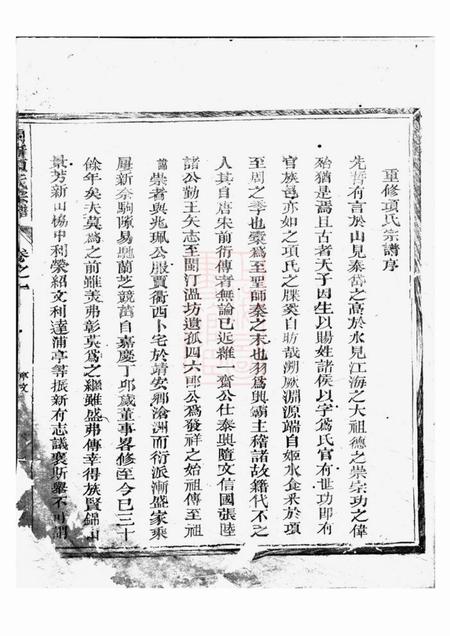 重修項氏宗譜序
先哲有言於山見泰岱之高於水見江海之大祖德之崇宗功之偉
殆猶是焉且古者天子因生以賜姓諸侯以字爲氏官有世功即有
官族邑亦如之項氏之牒奚自昉哉溯厥淵源端自姬水食釆於項
至周之季也橐爲至聖師秦之末也羽爲興霸主稽諸故籍代不乏
人其自唐宋前衍傳者無論已近維一齋公仕泰興隨文信國張陸
諸公勤王矢志至閩汀溫坊遺孤四六郎公爲發祥之始祖傳至祖
諱崇者與兆珮公服賈衢西卜宅於靖安鄉滄洲而衍派漸盛家乘
屢新奈駒隙易馳蘭芝競茁自嘉慶丁卯歲董事畧修至今已三十
餘年矣夫莫爲之前雖美弗彰莫爲之繼雖盛弗傳幸得族賢錦山
景芳新山楊中利榮紹文利達蒲亭等振新有志議襄斯舉不可謂
卷之一